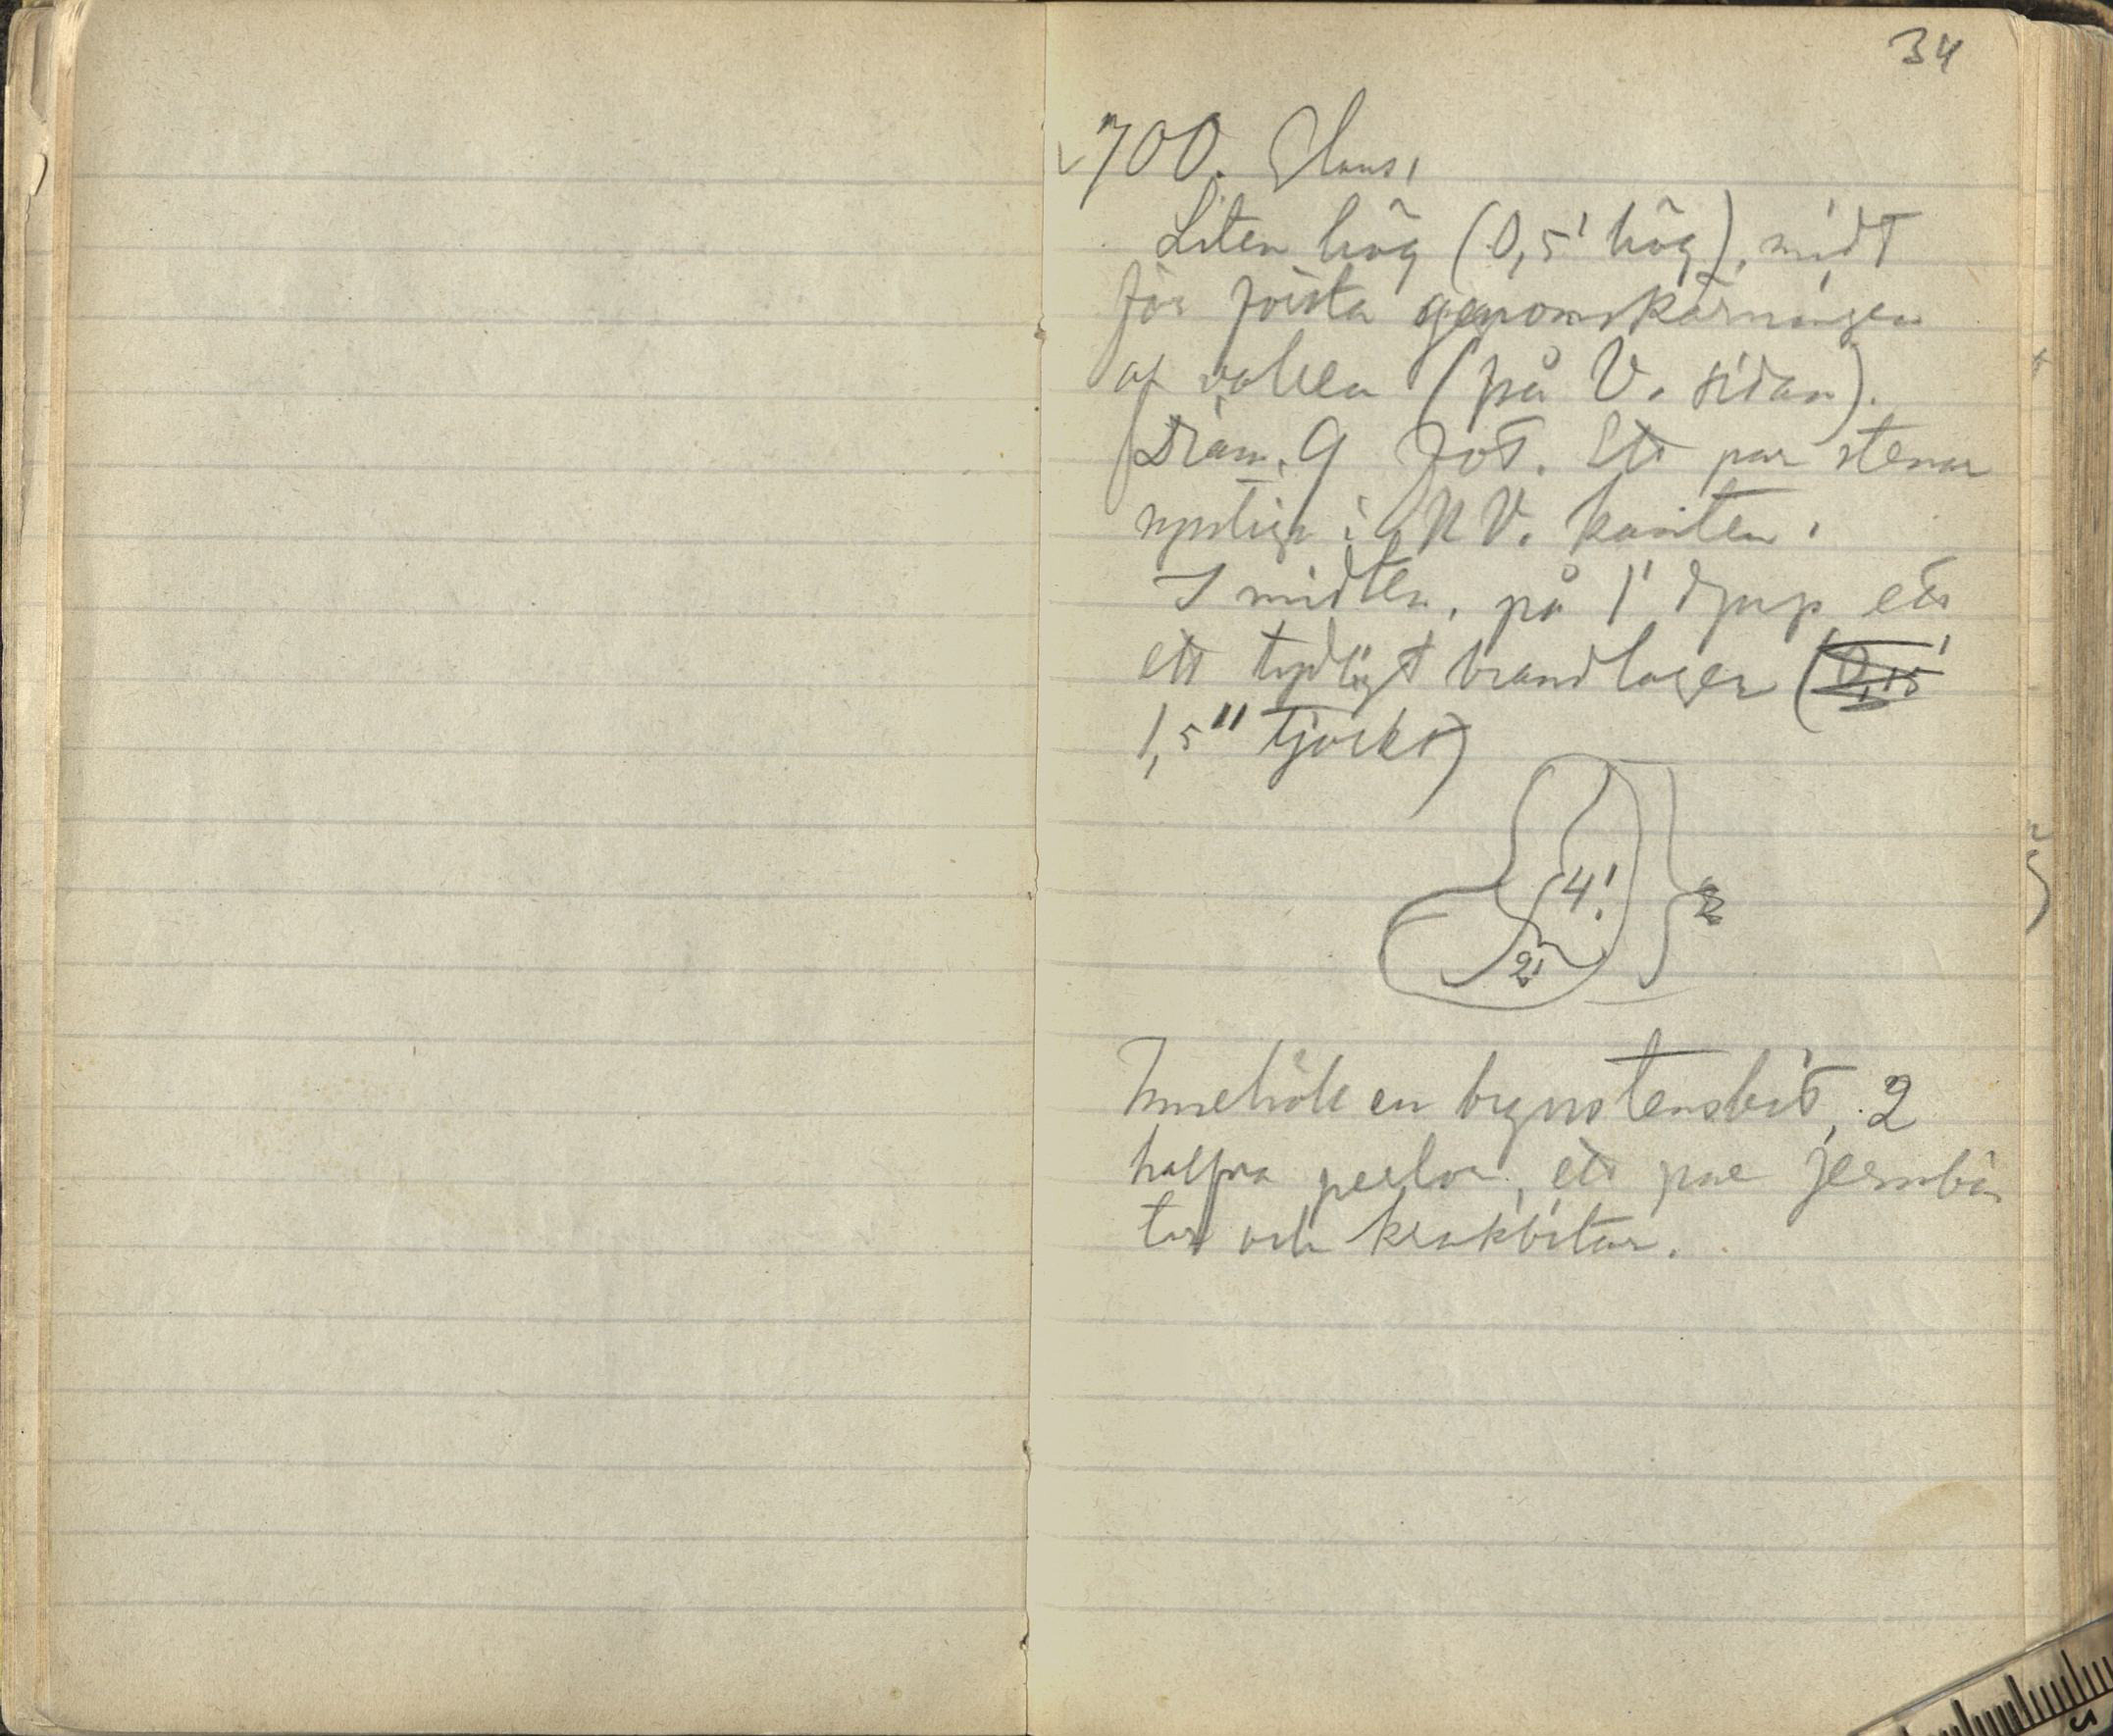 34
700. Hans.
Liten hög (0,5' hög), midt
för första genomskärningen
af vallen (på V. sidan).
Diam. 9 fot. Ett par stenar
synliga i NV. kanten.
I midten, på 1' djup ett
ett tydligt brandlager (0,15'
1,5" tjockt)
4'
2'
Innehöll en bernstensbit, 2
halfva perlor, ett par jernbi
tar och krukbitar.